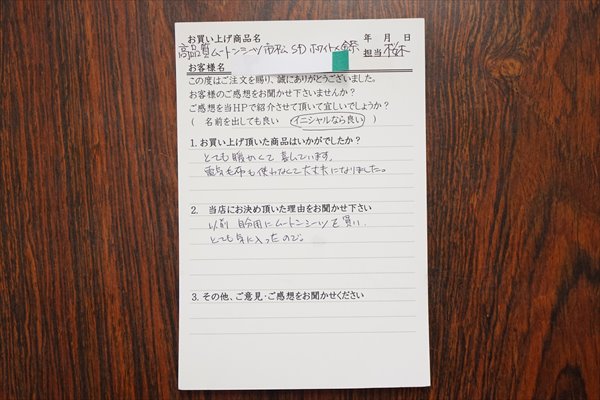 お買い上げ商品名 年 月 日
高品質ムートンシーツ市松 SD ホワイト×
担当
お客様名
この度はご注文を賜り、誠にありがとうございました。
お客様のご感想をお聞かせ下さいませんか？
ご感想を当HPで紹介させて頂いて宜しいでしょうか？
( 名前を出しても良い イニシャルなら良い )
1. お買い上げ頂いた商品はいかがでしたか？
とても暖かくて 喜んでいます。
電気毛布も使わなくて大丈夫になりました。
2. 当店にお決め頂いた理由をお聞かせ下さい
以前 自分用にムートンシーツを買い、
とても気に入ったので。
3. その他、ご意見・ご感想をお聞かせください